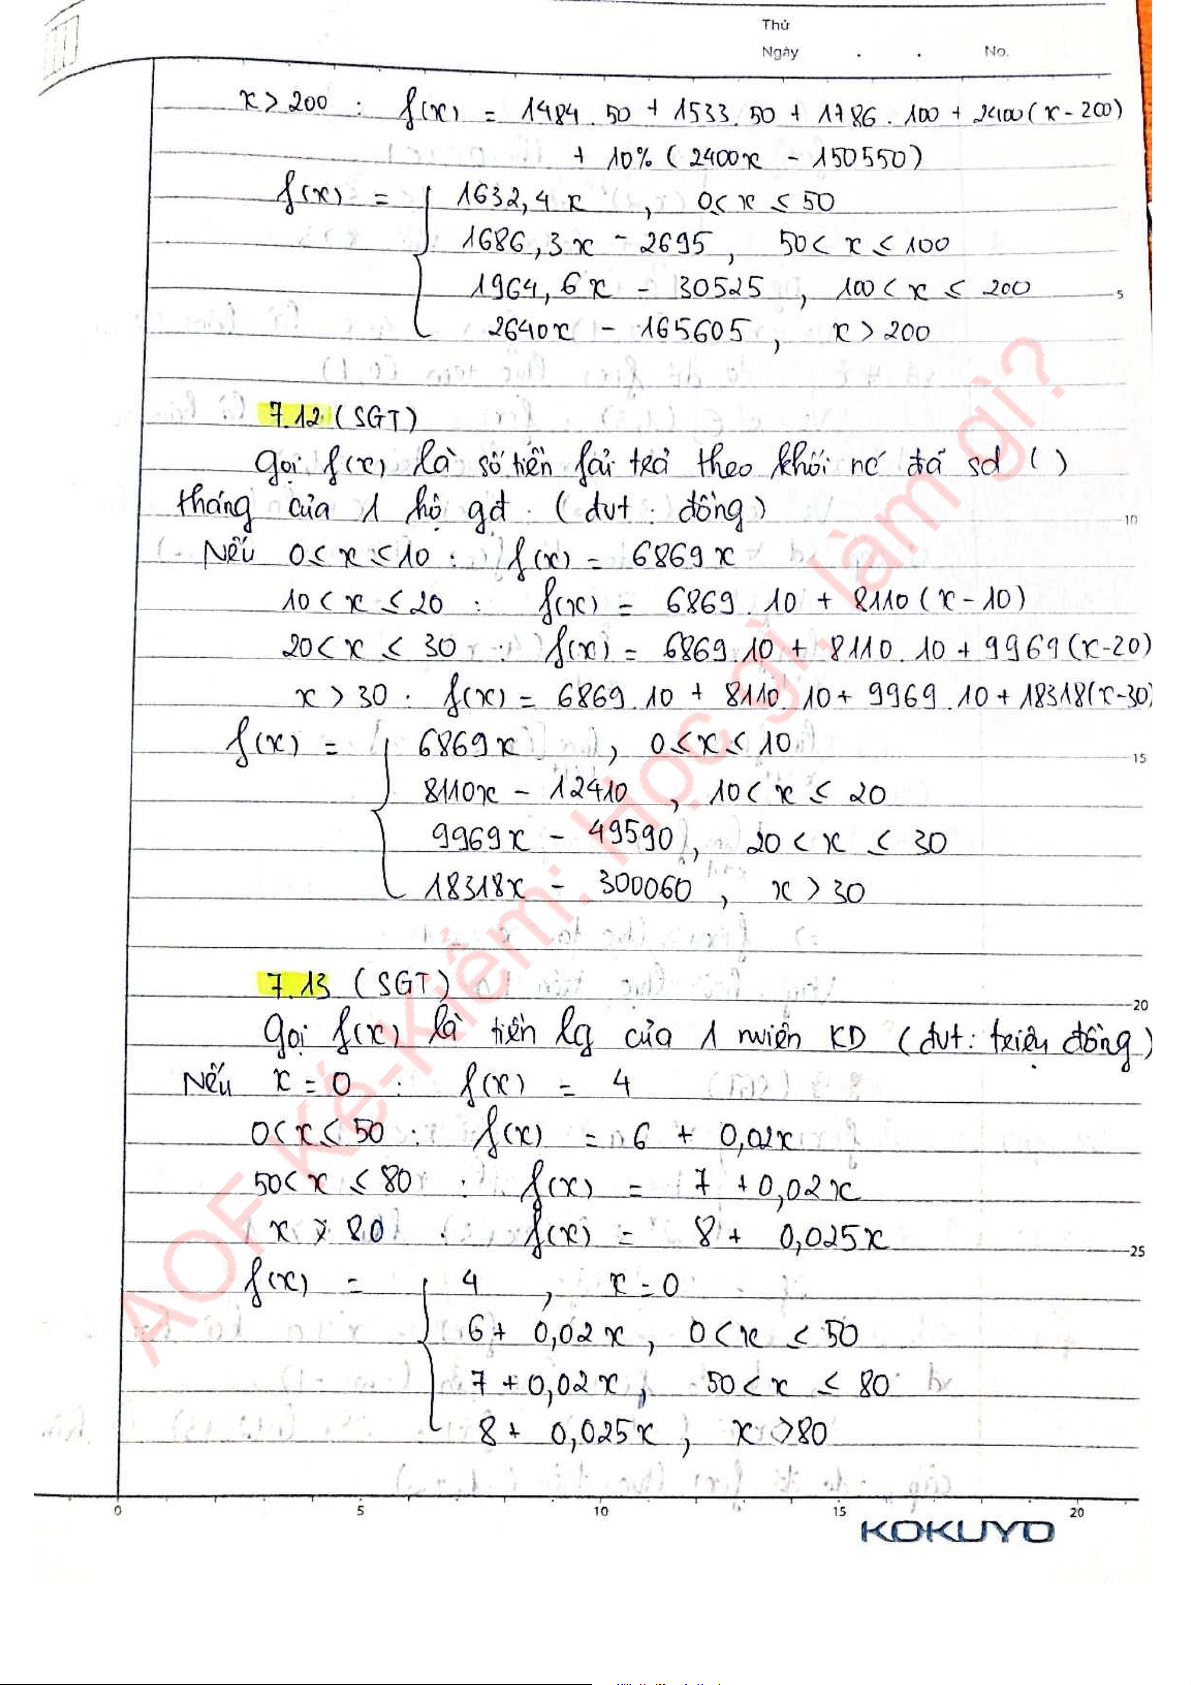 Thứ
Ngày . . No.
x > 200 : f(x) = 1484.50 + 1533.50 + 1786.100 + 2400(x - 200)
+ 10% (2400x - 150550)
f(x) = { 1632,4x , 0≤ x ≤ 50
1686,3x - 2695 , 50 < x ≤ 100
1964,6x - 30525 , 100 < x ≤ 200
5
2640x - 165605 , x > 200
7.12 (SGT)
Gọi f(x) là số tiền fải trả theo khối nc đã sd ( )
tháng của 1 hộ gđ . (đvt : đồng)
10
Nếu 0 ≤ x ≤ 10 : f(x) = 6869x
10 < x ≤ 20 : f(x) = 6869.10 + 8110(x - 10)
20 < x ≤ 30 : f(x) = 6869.10 + 8110.10 + 9969(x-20)
x > 30 : f(x) = 6869.10 + 8110.10 + 9969.10 + 18318(x-30)
f(x) = { 6869x , 0 ≤ x ≤ 10
15
8110x - 12410 , 10 < x ≤ 20
9969x - 49590 , 20 < x ≤ 30
18318x - 300060 , x > 30
7.13 (SGT)
20
Gọi f(x) là tiền lg của 1 nviên KD (đvt: triệu đồng)
Nếu x = 0 : f(x) = 4
0 < x ≤ 50 : f(x) = 6 + 0,02x
50 < x ≤ 80 : f(x) = 7 + 0,02x
x > 80 . f(x) = 8 + 0,025x
25
f(x) = { 4 , x = 0
6 + 0,02x , 0 < x ≤ 50
7 + 0,02x , 50 < x ≤ 80
8 + 0,025x , x > 80
0 5 10 15 20
KOKUYO
AOF Ké-Kiểm: Học gì, làm gì?